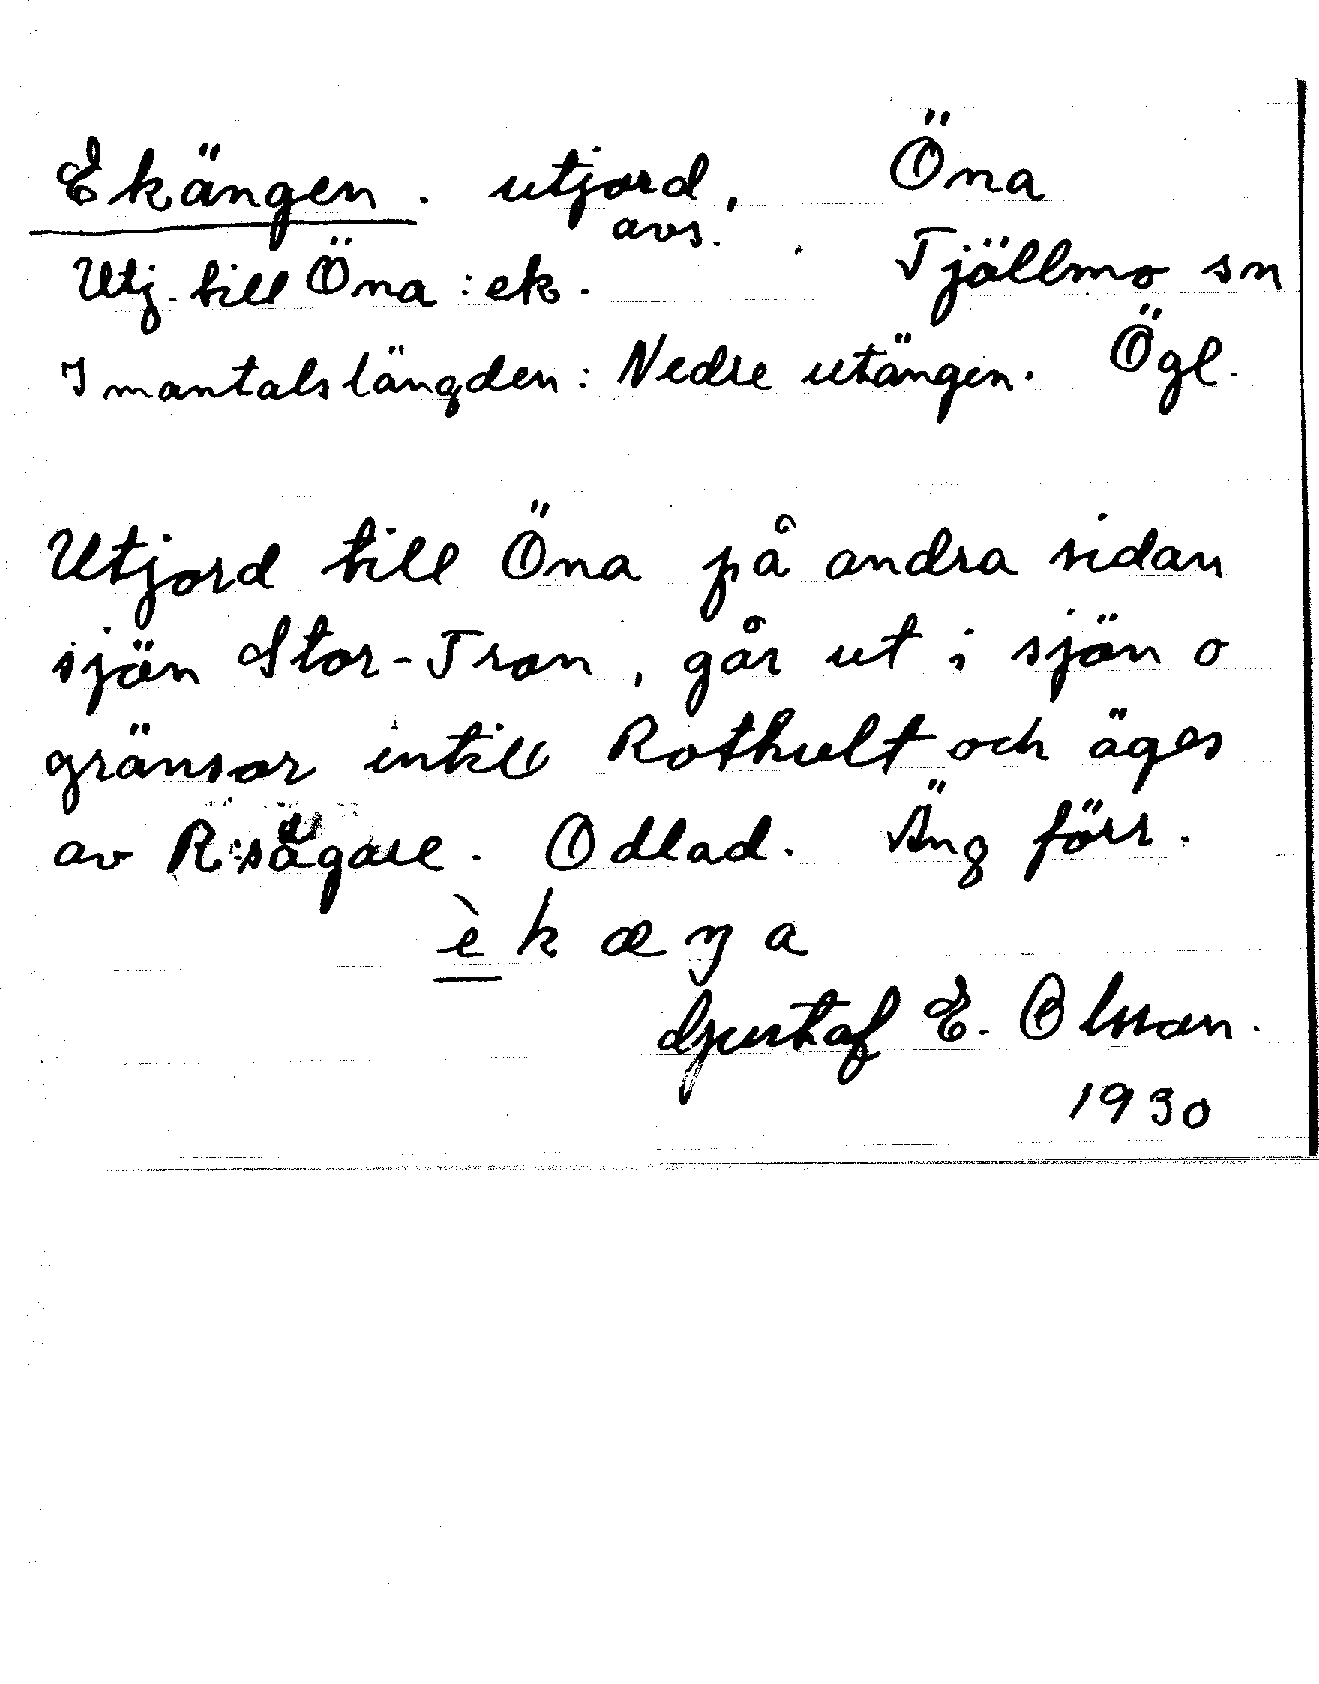 Ekängen. utjord, Öna
avs.
Utj. till Öna : ek. Tjällmo sn
I mantalslängden: Nedre utängen. Ögl.
Utjord till Öna på andra sidan
sjön Stor-Tron, går ut i sjön o
gränsar intill Rothult och äges
av R:sägare. Odlad. Äng förr.
è k æ ŋ a
Gustaf E. Olsson.
1930